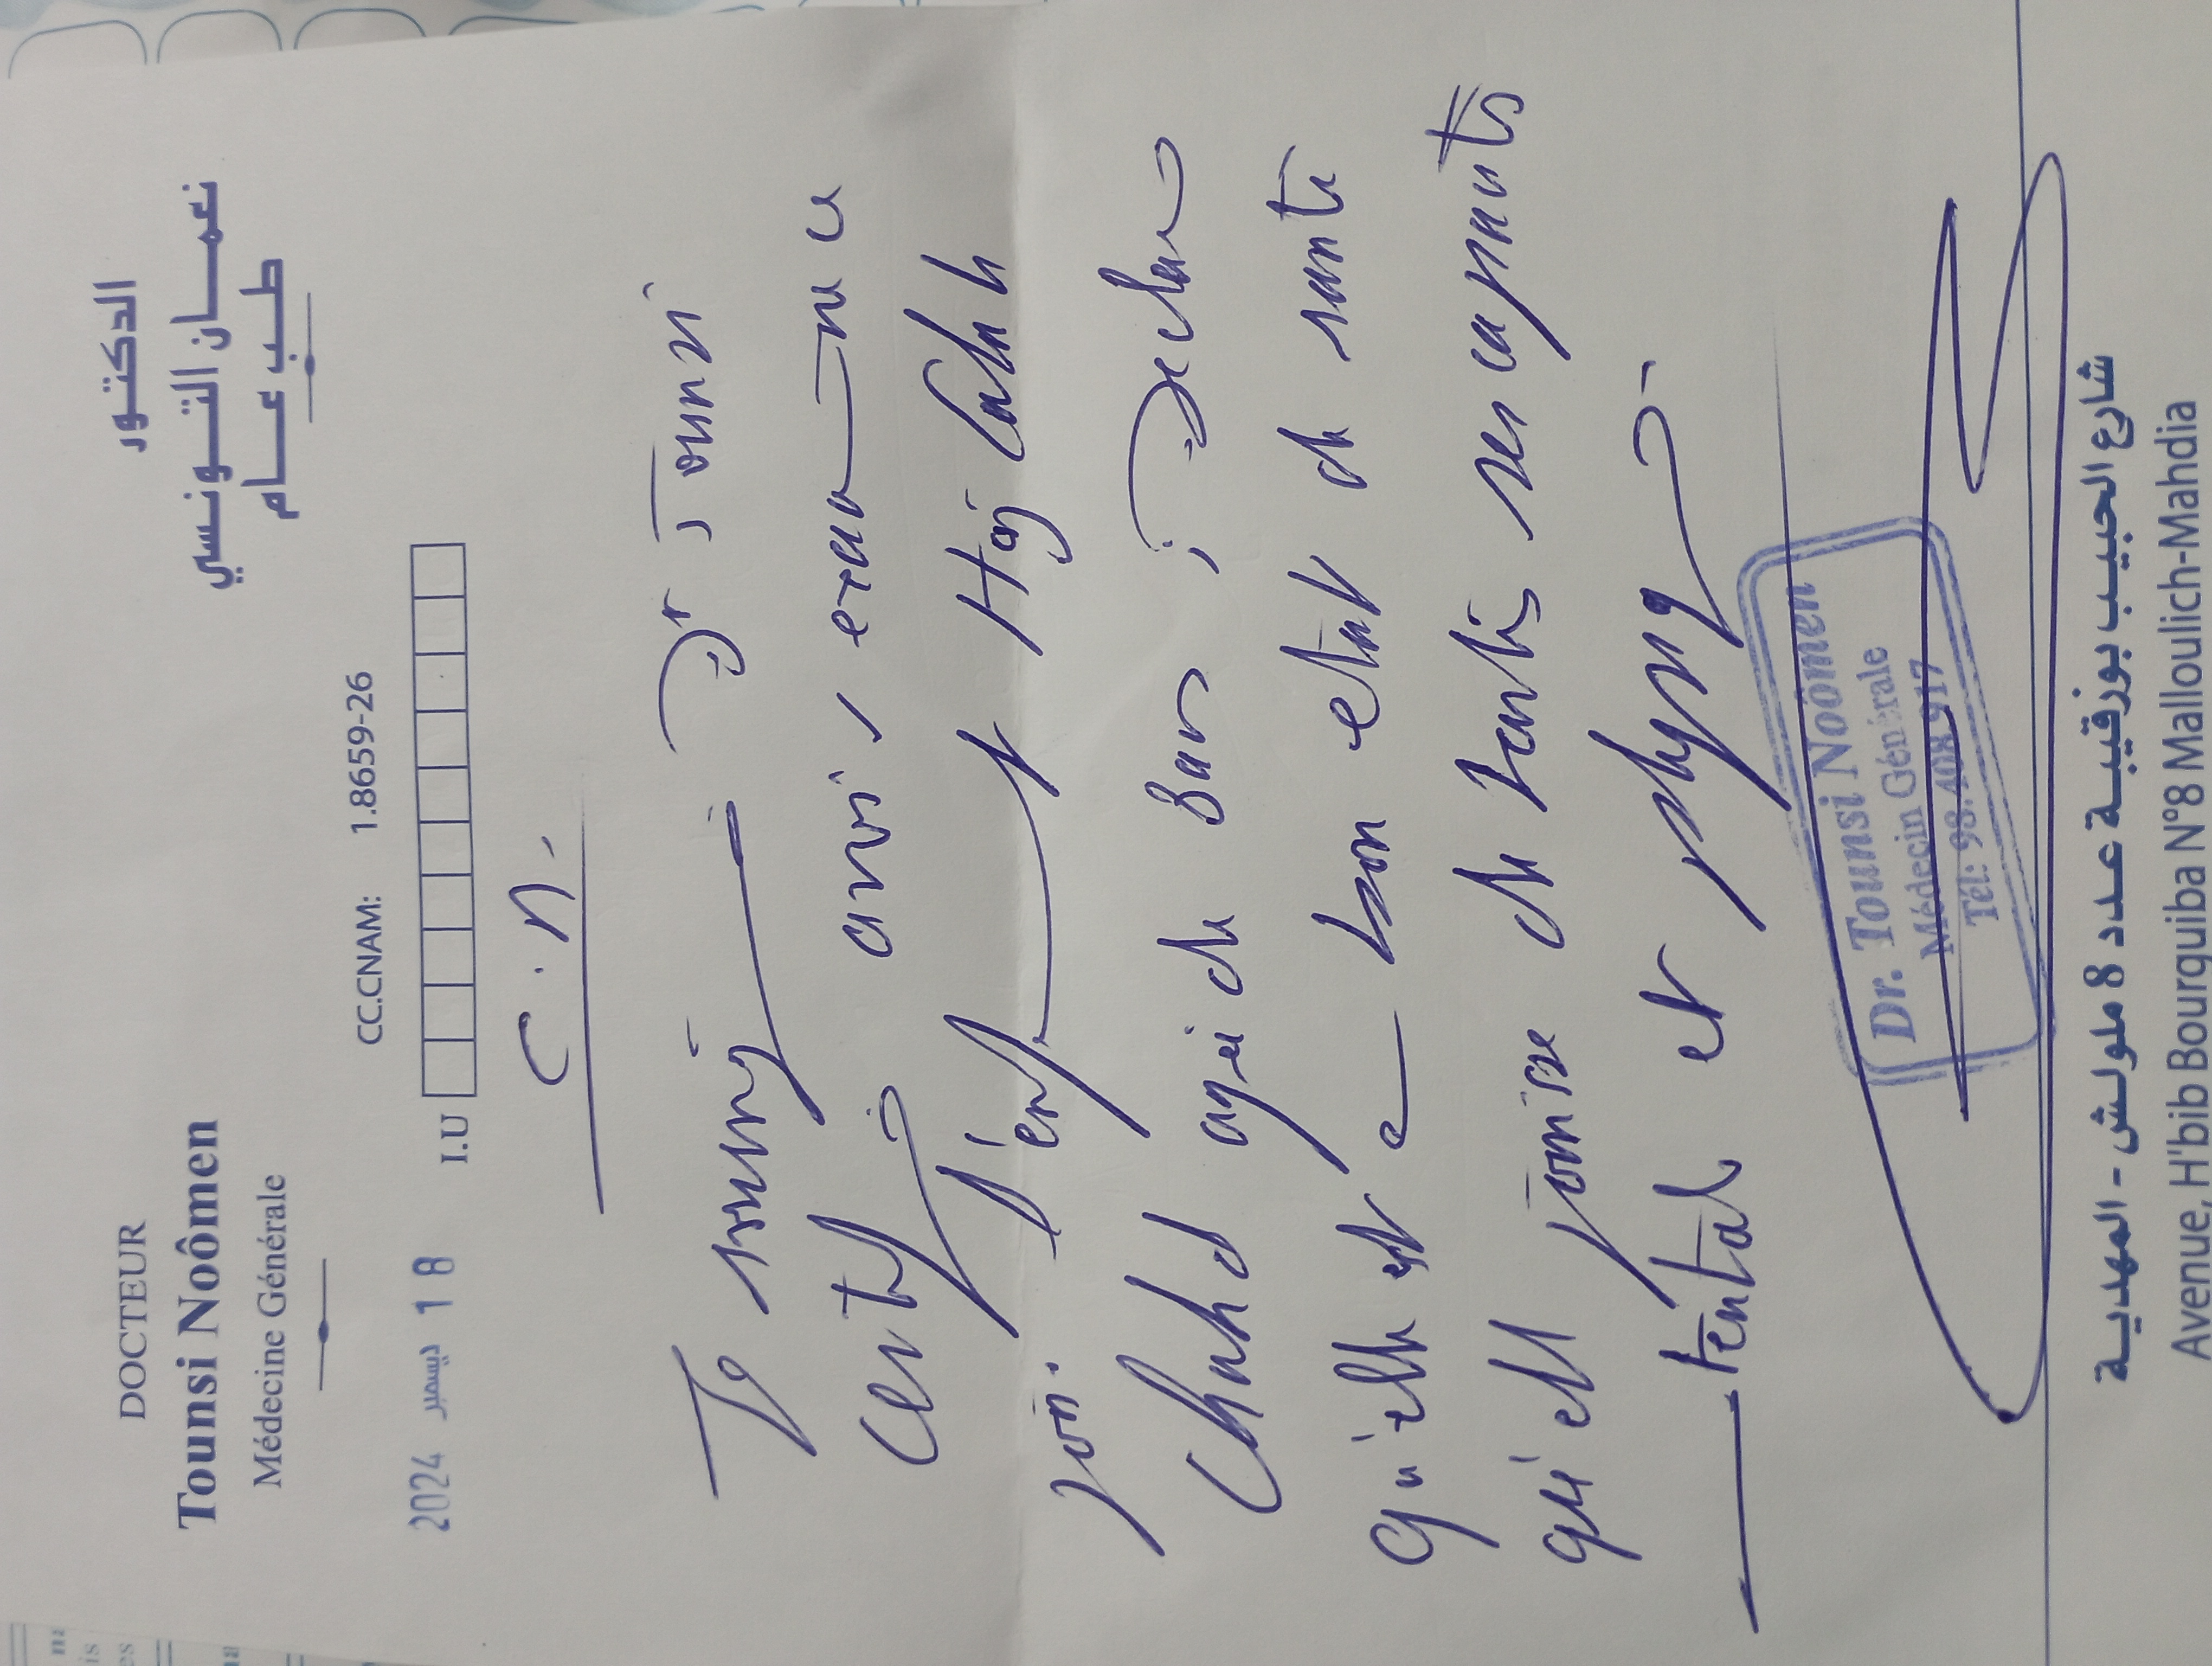 DOCTEUR
Tounsi Noômen
Médecine Générale
الدكتور
نعمان التونسي
طب عام
2024 ديسمبر 18
CC.CNAM: 1.8659-26
I.U
C.M.
Je soussigné Dr Tounsi
Certifie avoir examiné ce
jour l'enf Haj Salah
Chahd agée de 8 ans; Declare
qu'elle est en bon etat de santé
qu'elle jouisse de toutes ses capacités
mentale et physiq
Dr. Tounsi Noômen
Médecin Générale
Tél: 98.408.917
شارع الحبيب بورقيبة عدد 8 ملولش - المهدية
Avenue, H'bib Bourguiba N°8 Malloulich-Mahdia